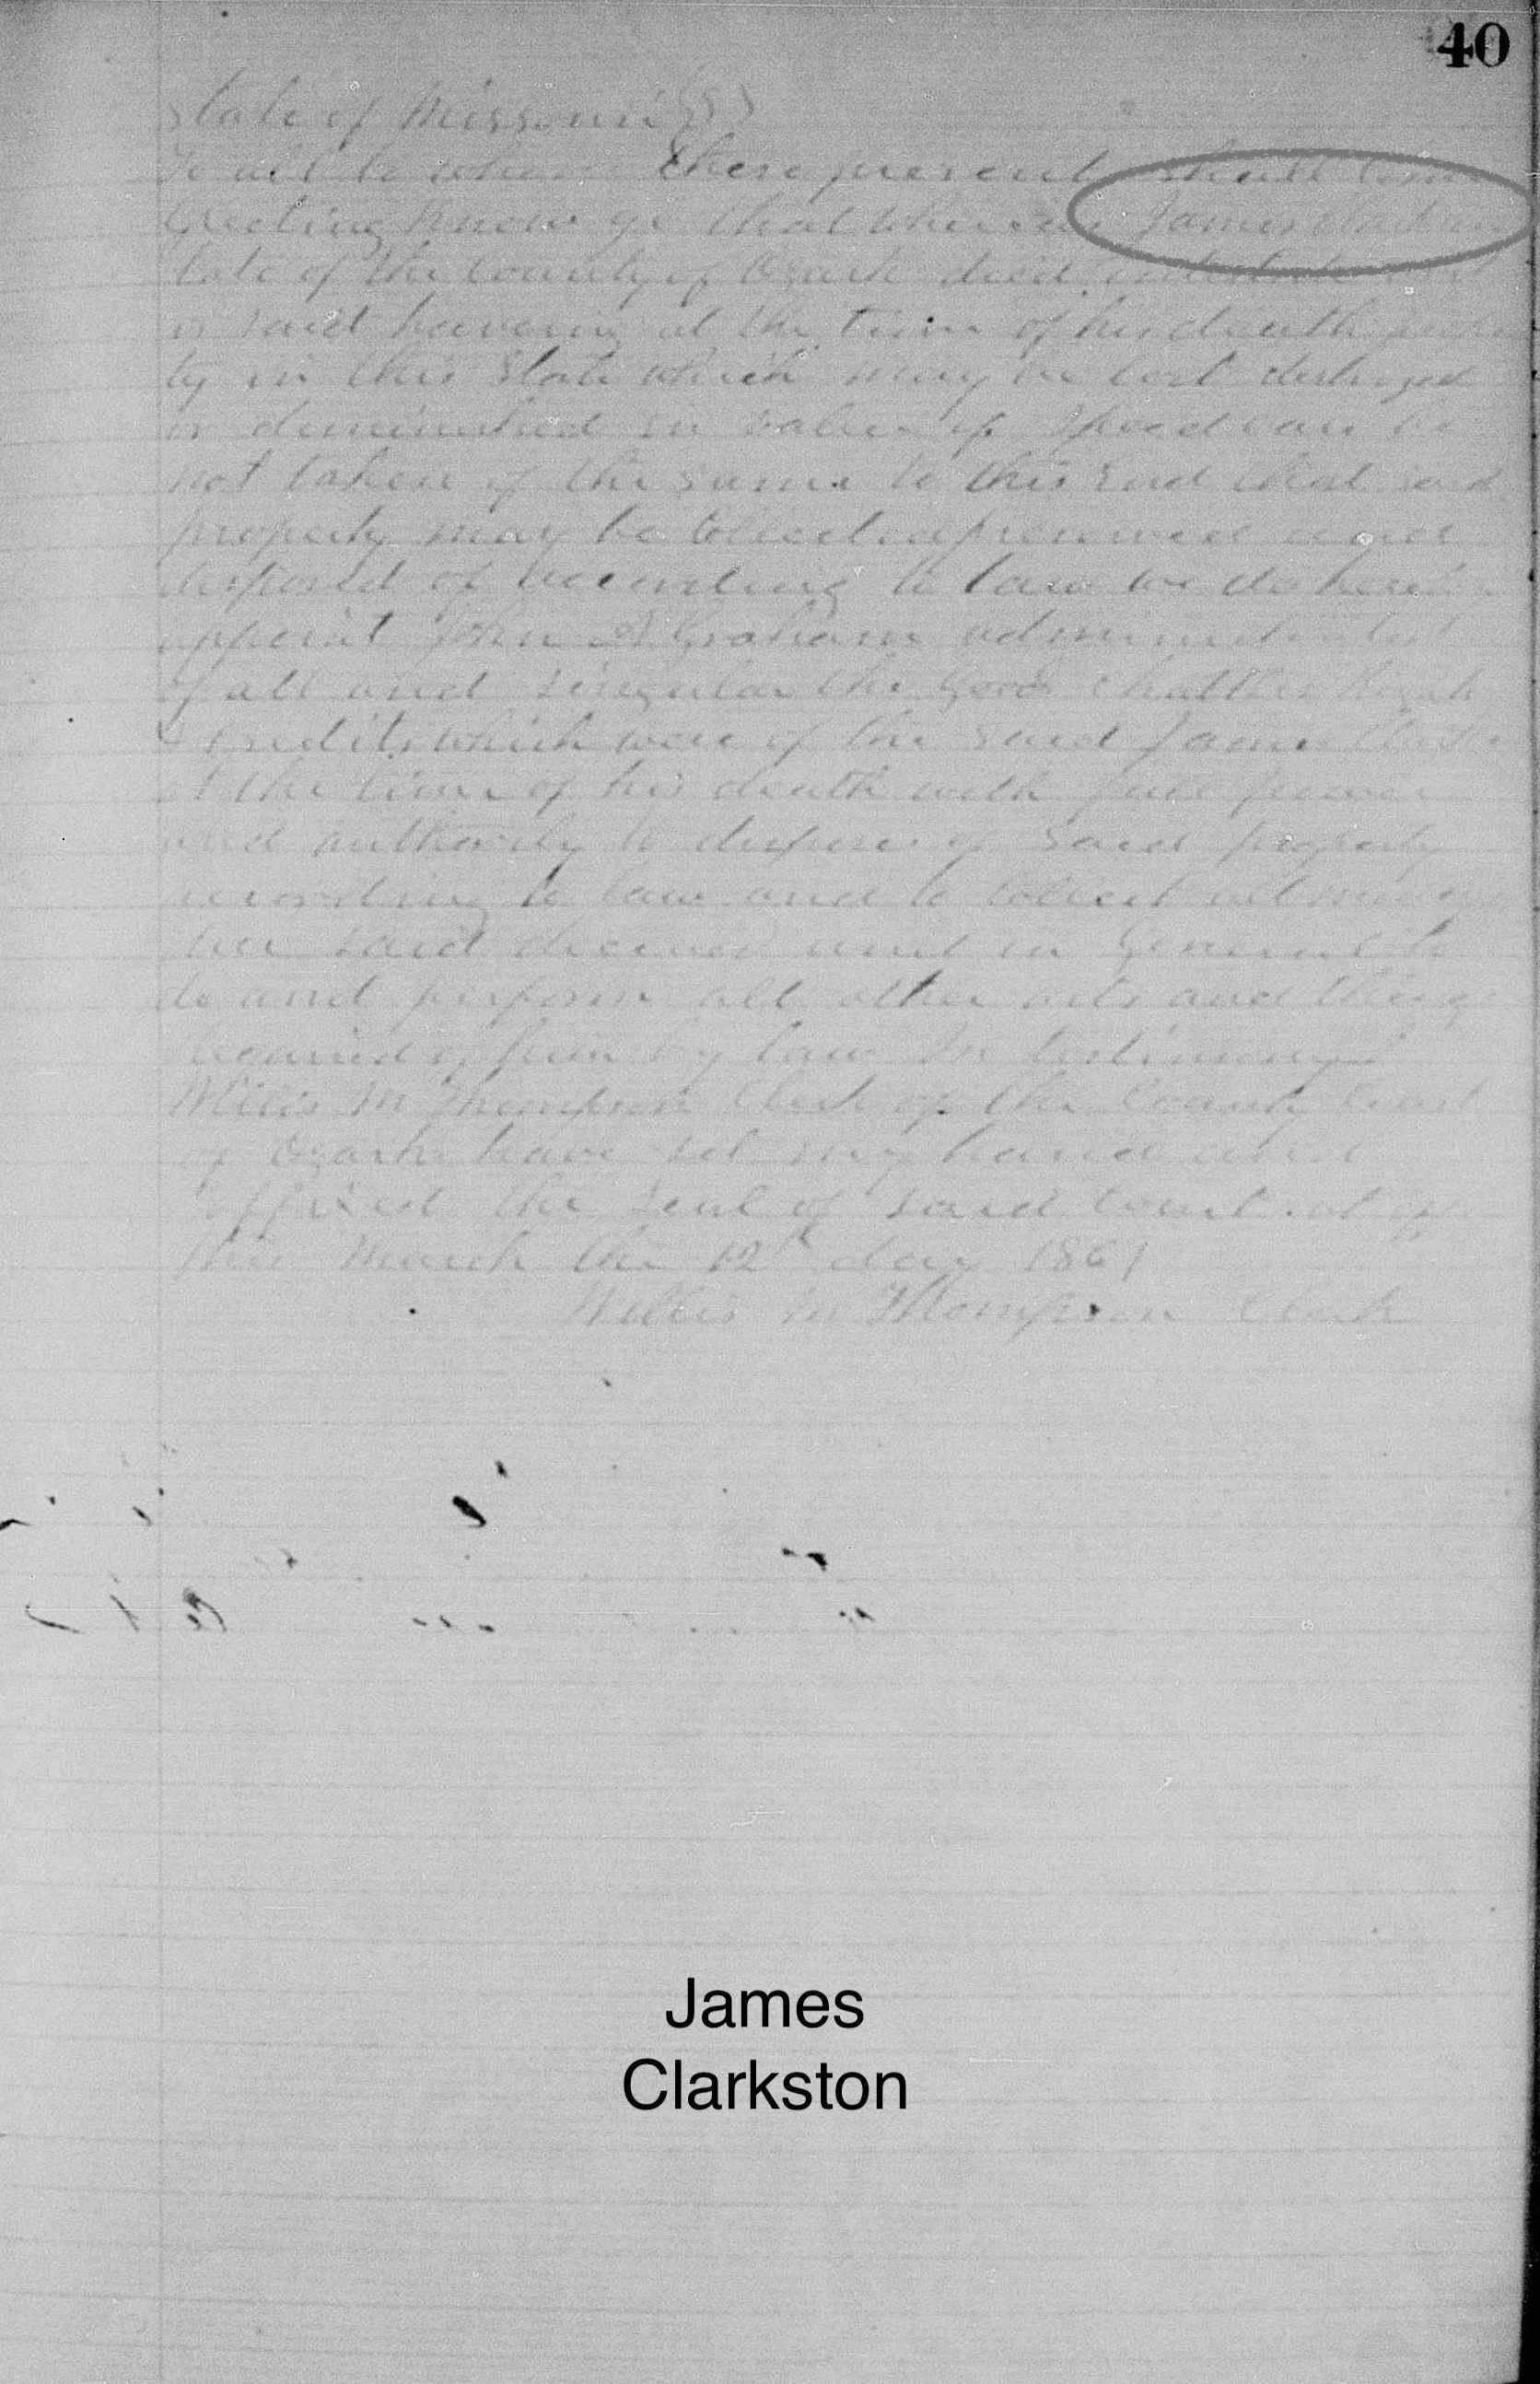 40
State of Missouri SS
To all to whom these present shall Come
Greeting Know ye that whereas James
late of the County of Ozark died intestate
is said having at the time of his death
ty in this State which may be lost destroyed
or diminished in value if speed care be
not taken of the same to this End that said
property may be and
disposed of according to law we do hereby
appoint John Graham
of all and singular the Goods
& Credits which were of the said James
at the time of his death with full power
and authority to dispose of said property
according to law and to collect all
said and in General to
do and perform all other acts and things
required of him by law In testimony
Willis M Thompson Clerk of the County Court
of Ozark have set my hand and
affixed the Seal of said Court at
this March the 12th day 1861
Willis M Thompson Clerk
James
Clarkston